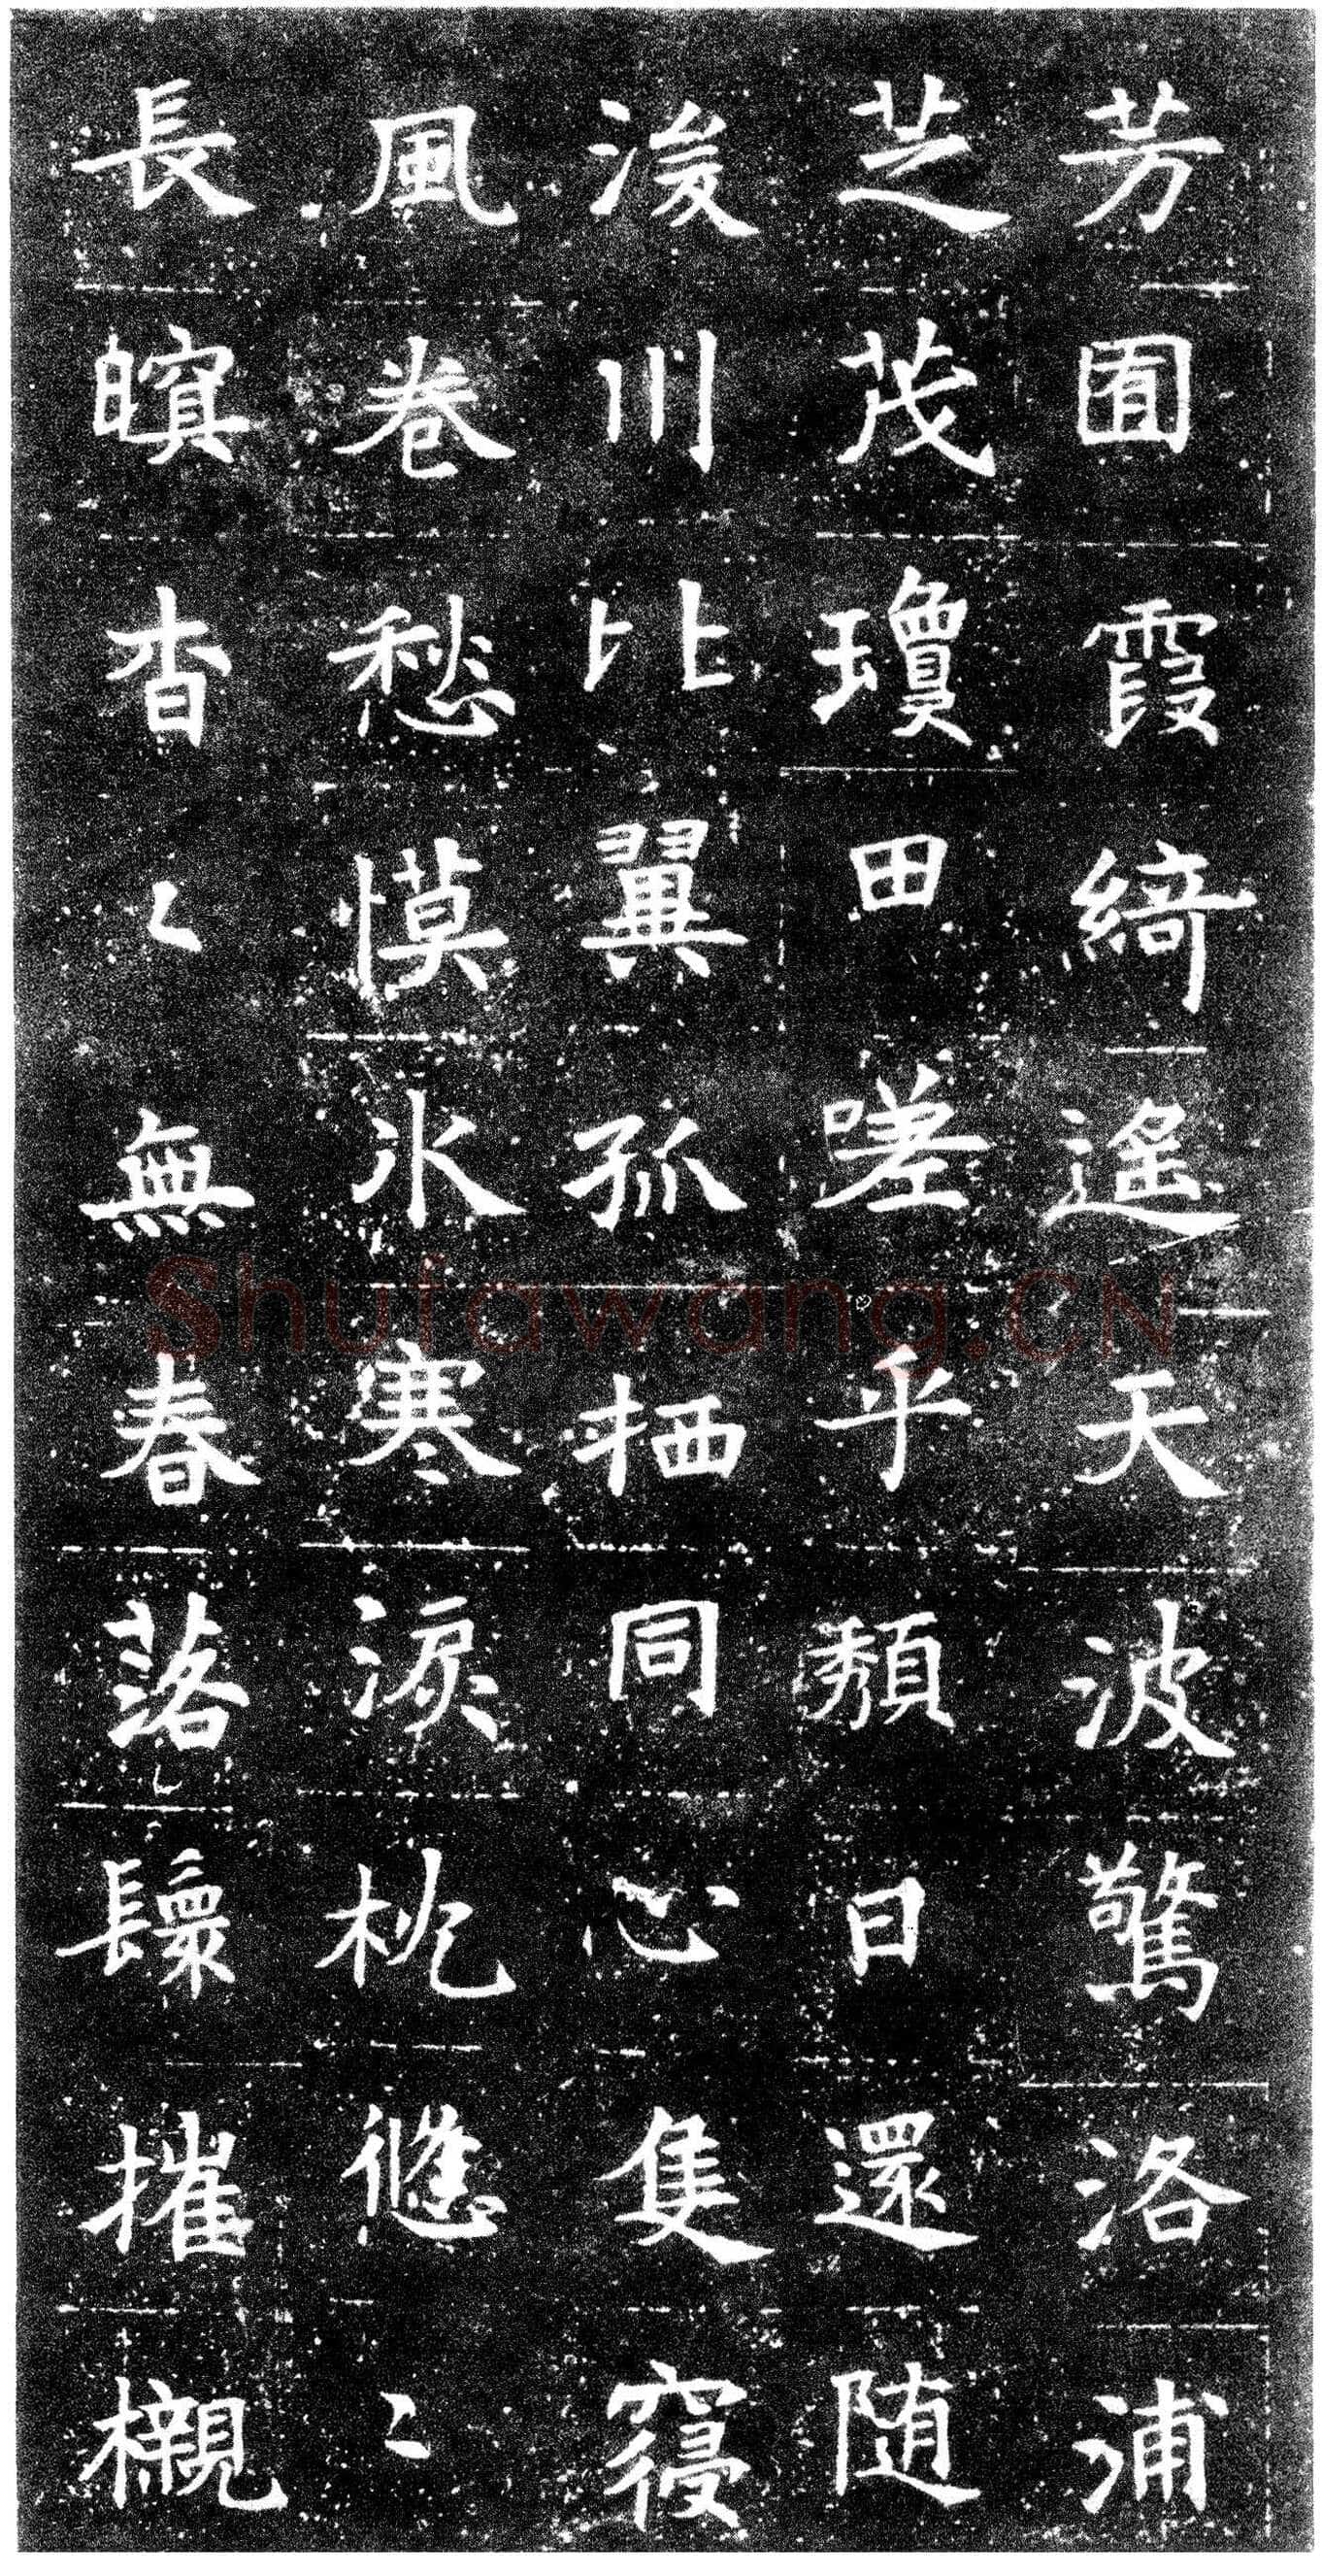 芳囿霞綺遙天波驚洛浦
芝茂瓊田嗟乎頹日還随
浚川比翼孤栖同心隻寢
風卷愁慔氷寒淚枕悠〻
長暝杳〻無春落鬟摧櫬
Shufawang.CN